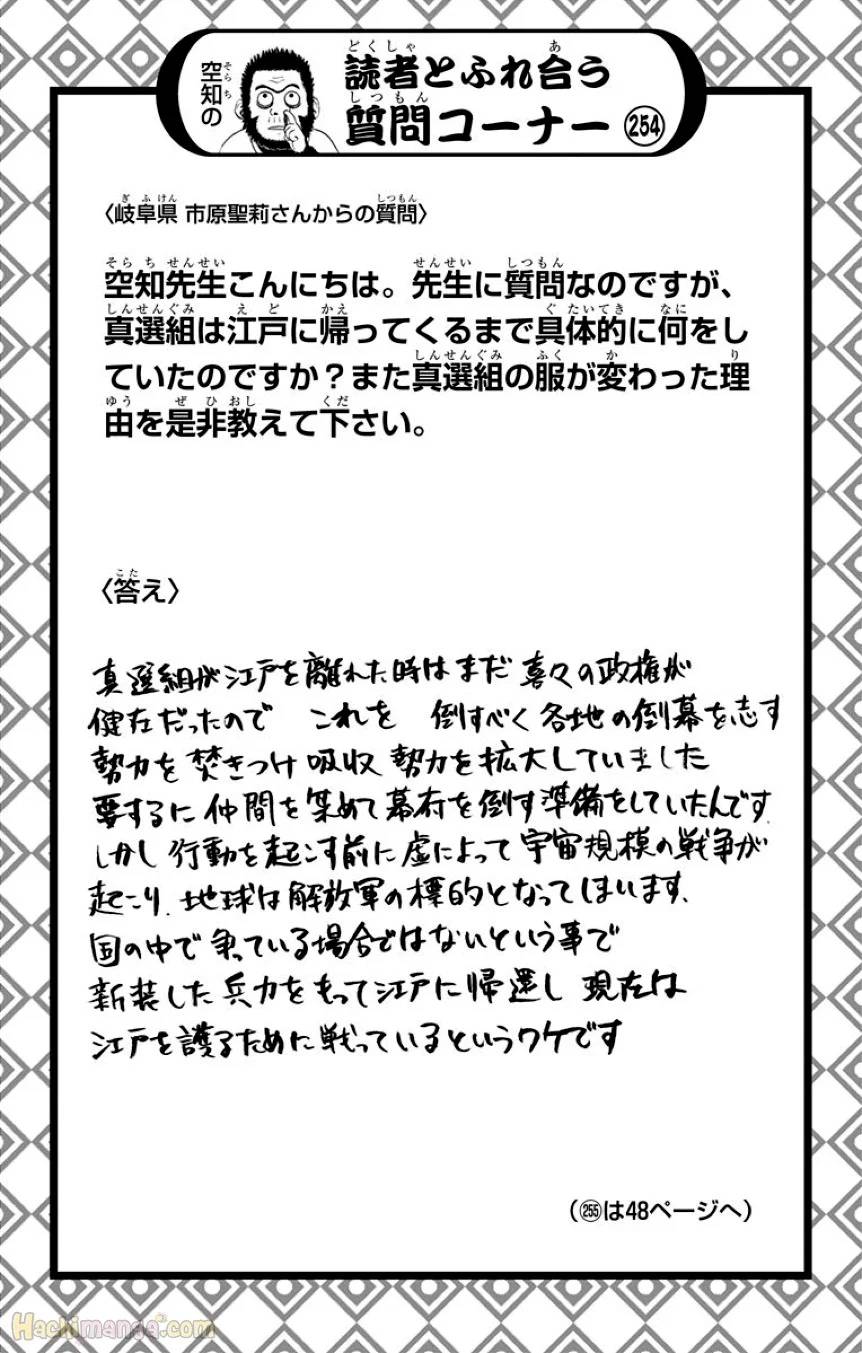 空知の
読者とふれ合う
質問コーナー 254
〈岐阜県 市原聖莉さんからの質問〉
空知先生こんにちは。先生に質問なのですが、
真選組は江戸に帰ってくるまで具体的に何をし
ていたのですか？また真選組の服が変わった理
由を是非教えて下さい。
〈答え〉
真選組が江戸を離れた時はまだ 喜々の政権が
健在だったので これを 倒すべく 各地の倒幕を志す
勢力を 焚きつけ 吸収 勢力を拡大していました
要するに 仲間を集めて幕府を倒す準備をしていたんです.
しかし 行動を起こす前に 虚によって 宇宙規模の戦争が
起こり. 地球は解放軍の標的となってしまいます.
国の中で 争っている場合ではないという事で
新装した 兵力をもって江戸に帰還し 現在は
江戸を護るために戦っているというワケです
（255は48ページへ）
Hachimanga.com